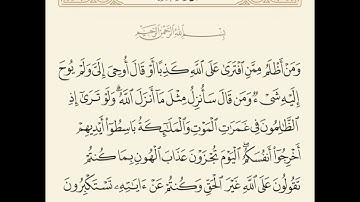 بِسْمِ اللَّهِ الرَّحْمَٰنِ الرَّحِيمِ
وَمَنْ أَظْلَمُ مِمَّنِ ٱفْتَرَىٰ عَلَى ٱللَّهِ كَذِبًا أَوْ قَالَ أُوحِىَ إِلَىَّ وَلَمْ يُوحَ
إِلَيْهِ شَىْءٌ وَمَن قَالَ سَأُنزِلُ مِثْلَ مَآ أَنزَلَ ٱللَّهُ ۗ وَلَوْ تَرَىٰٓ إِذِ
ٱلظَّٰلِمُونَ فِى غَمَرَٰتِ ٱلْمَوْتِ وَٱلْمَلَٰٓئِكَةُ بَاسِطُوٓا۟ أَيْدِيهِمْ
أَخْرِجُوٓا۟ أَنفُسَكُمُ ۖ ٱلْيَوْمَ تُجْزَوْنَ عَذَابَ ٱلْهُونِ بِمَا كُنتُمْ
تَقُولُونَ عَلَى ٱللَّهِ غَيْرَ ٱلْحَقِّ وَكُنتُمْ عَنْ ءَايَٰتِهِۦ تَسْتَكْبِرُونَ